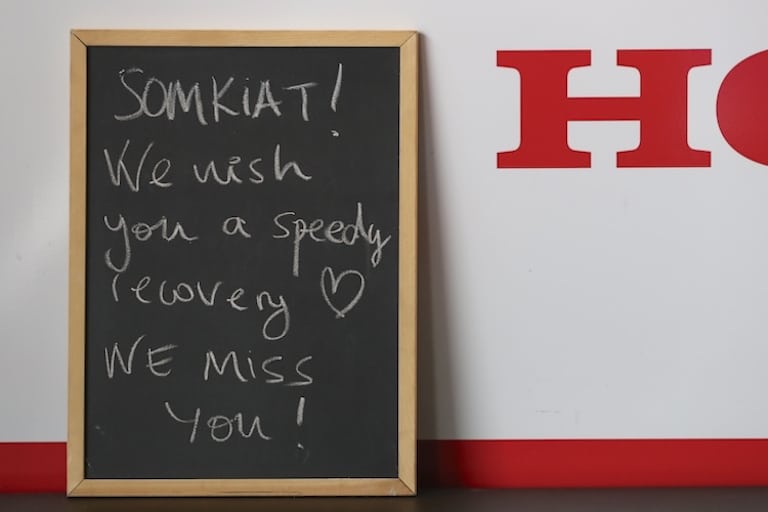 SOMKiAT!
We wish
you a speedy
recovery ♡
WE MiSS
You!
HO